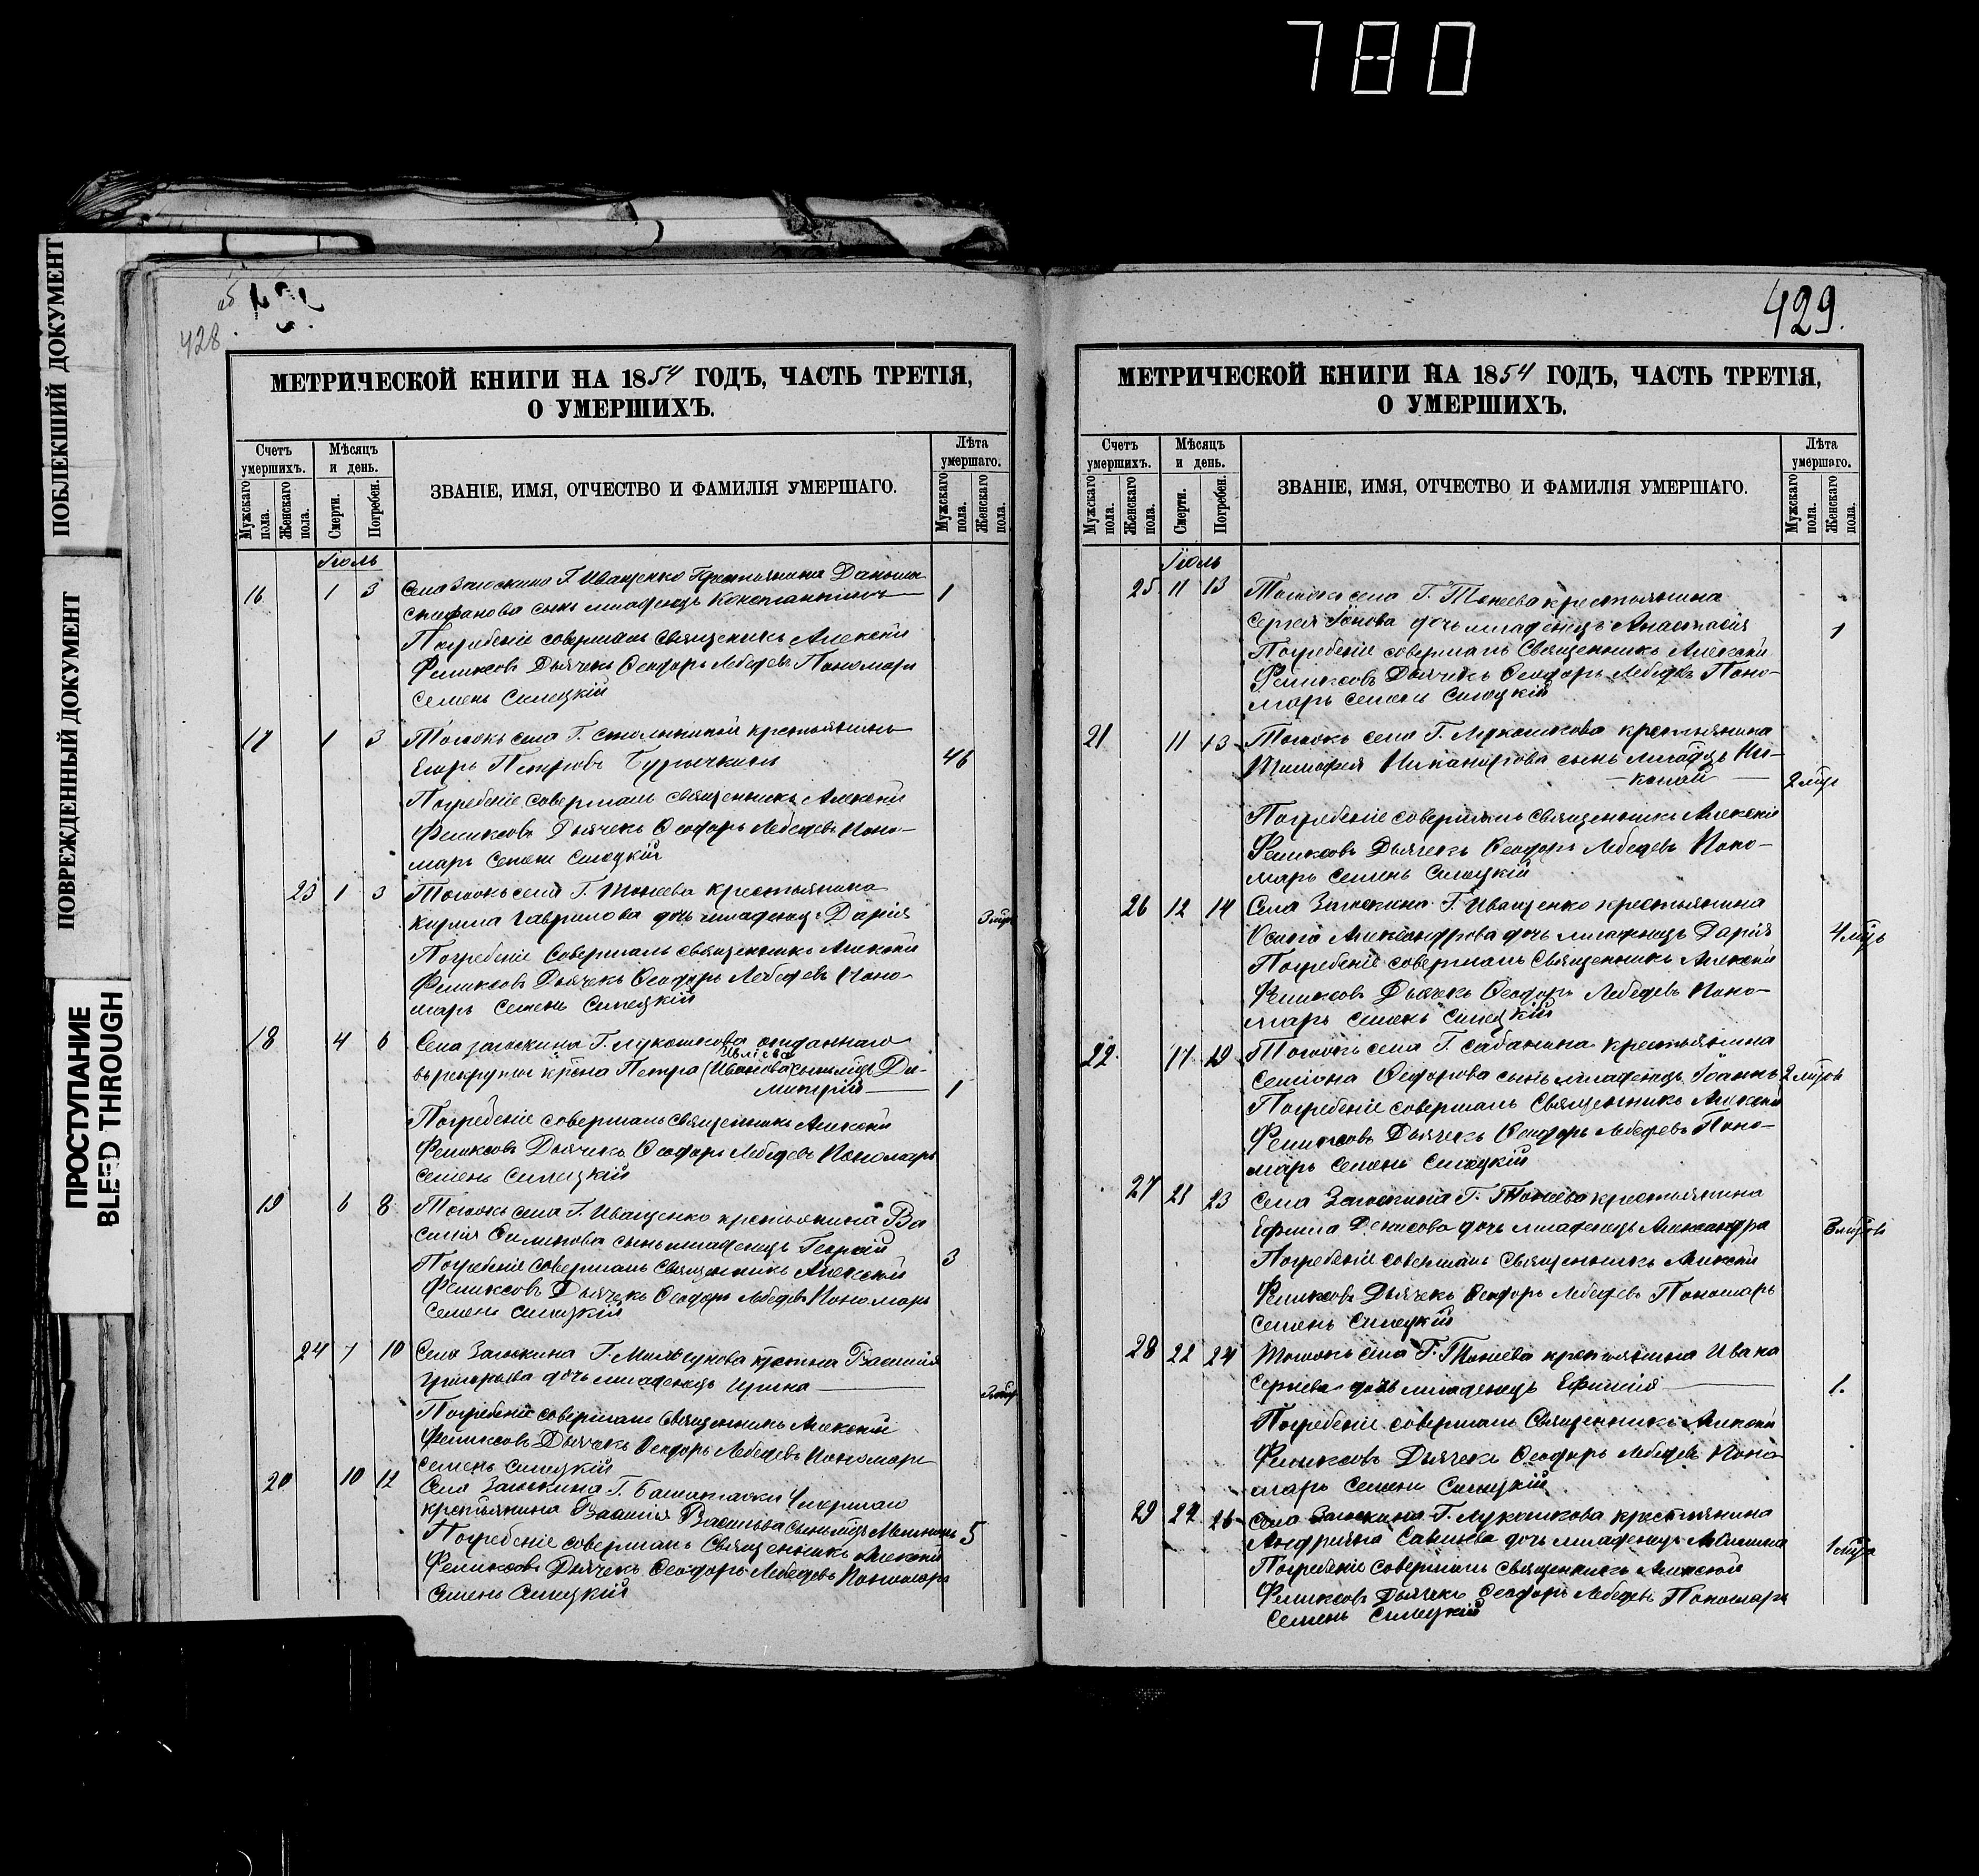 780
ПОБЛЕКШИЙ ДОКУМЕНТ
ПОВРЕЖДЕННЫЙ ДОКУМЕНТ
ПРОСТУПАНИЕ
BLEED THROUGH
428
МЕТРИЧЕСКОЙ КНИГИ НА 1854 ГОДЪ, ЧАСТЬ ТРЕТІЯ,
О УМЕРШИХЪ.
Счетъ умершихъ.
Мѣсяцъ и день.
ЗВАНІЕ, ИМЯ, ОТЧЕСТВО И ФАМИЛІЯ УМЕРШАГО.
Лѣта умершаго.
Мужскаго пола.
Женскаго пола.
Смерти.
Погребен.
Мужскаго пола.
Женскаго пола.
Іюль
16 1 3 Села Загоскина Г. Иващенко Крестьянина Данила
Стефанова сынъ младенецъ Константинъ 1
Погребеніе совершалъ Священникъ Алексѣй
Феликсовъ Дьячекъ Ѳеодоръ Лебедевъ Пономарь
Семенъ Силецкій
17 1 3 Тогожъ села Г. крестьянинъ
Егоръ Петровъ 46
Погребеніе совершалъ священникъ Алексѣй
Феликсовъ Дьячекъ Ѳеодоръ Лебедевъ Поно-
марь Семенъ Силецкій
23 1 3 Тогожъ села Г. Тонеева крестьянина
Кирила Гаврилова дочь младенецъ Дарія 3
Погребеніе Совершалъ священникъ Алексѣй
Феликсовъ Дьячекъ Ѳеодоръ Лебедевъ Поно-
марь Семенъ Силецкій
18 4 6 Села Загоскина Г. Лукошкова отданнаго
въ рекруты Петра (Иванова) сынъ Ди-
митрій 1
Погребеніе совершалъ священникъ Алексѣй
Феликсовъ Дьячекъ Ѳеодоръ Лебедевъ Пономарь
Семенъ Силецкій
19 6 8 Тогожъ села Г. Иващенко крестьянина Ва
силія сынъ младенецъ Георгій
Погребеніе Совершалъ Священникъ Алексѣй 3
Феликсовъ Дьячекъ Ѳеодоръ Лебедевъ Пономарь
Семенъ Силецкій
24 7 10 Села Загоскина Г. Василія
Григорьева дочь младенецъ Ирина
Погребеніе совершалъ Священникъ Алексѣй
Феликсовъ Дьячекъ Ѳеодоръ Лебедевъ Пономарь
Семенъ Силецкій
20 10 12 Села Загоскина Г.
крестьянина Василія Васильева сынъ 5
Погребеніе совершалъ Священникъ Алексѣй
Феликсовъ Дьячекъ Ѳеодоръ Лебедевъ Пономарь
Семенъ Силецкій
429.
МЕТРИЧЕСКОЙ КНИГИ НА 1854 ГОДЪ, ЧАСТЬ ТРЕТІЯ,
О УМЕРШИХЪ.
Счетъ умершихъ.
Мѣсяцъ и день.
ЗВАНІЕ, ИМЯ, ОТЧЕСТВО И ФАМИЛІЯ УМЕРШАГО.
Лѣта умершаго.
Мужскаго пола.
Женскаго пола.
Смерти.
Погребен.
Мужскаго пола.
Женскаго пола.
Іюль
25 11 13 Тогожъ села Г. Тонеева крестьянина
Сергея Іонова дочь младенецъ Анастасія 1
Погребеніе совершалъ Священникъ Алексѣй
Феликсовъ Дьячекъ Ѳеодоръ Лебедевъ Поно-
марь Семенъ Силецкій
21 11 13 Тогожъ села Г. Лукошкова крестьянина
Тимофея Никанорова сынъ Ни-
колай 2
Погребеніе совершалъ Священникъ Алексѣй
Феликсовъ Дьячекъ Ѳеодоръ Лебедевъ Поно-
марь Семенъ Силецкій
26 12 14 Села Загоскина Г. Иващенко крестьянина
Осипа Александрова дочь младенецъ Дарія 4
Погребеніе совершалъ Священникъ Алексѣй
Феликсовъ Дьячекъ Ѳеодоръ Лебедевъ Поно-
марь Семенъ Силецкій
22 17 19 Тогожъ села Г. Сабанина крестьянина
Семіона Ѳедорова сынъ младенецъ Іоаннъ 2
Погребеніе совершалъ Священникъ Алексѣй
Феликсовъ Дьячекъ Ѳеодоръ Лебедевъ Поно-
марь Семенъ Силецкій
27 21 23 Села Загоскина Г. Тонеева крестьянина
Ефима Денисова дочь младенецъ Александра 3
Погребеніе совершалъ Священникъ Алексѣй
Феликсовъ Дьячекъ Ѳеодоръ Лебедевъ Пономарь
Семенъ Силецкій
28 22 24 Тогожъ села Г. Тонеева крестьянина Ивана
Сергѣева дочь младенецъ Ефимія 1.
Погребеніе совершалъ Священникъ Алексѣй
Феликсовъ Дьячекъ Ѳеодоръ Лебедевъ Поно-
марь Семенъ Силецкій
29 24 26 Села Загоскина Г. Лукошкова крестьянина
Андріяна Савельева дочь младенецъ 1
Погребеніе совершалъ священникъ Алексѣй
Феликсовъ Дьячекъ Ѳеодоръ Лебедевъ Пономарь
Семенъ Силецкій